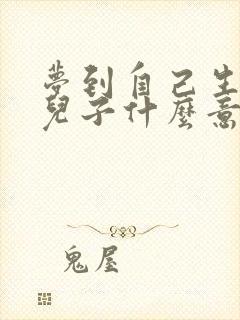 夢到自己生
兒子什麼意
鬼屋